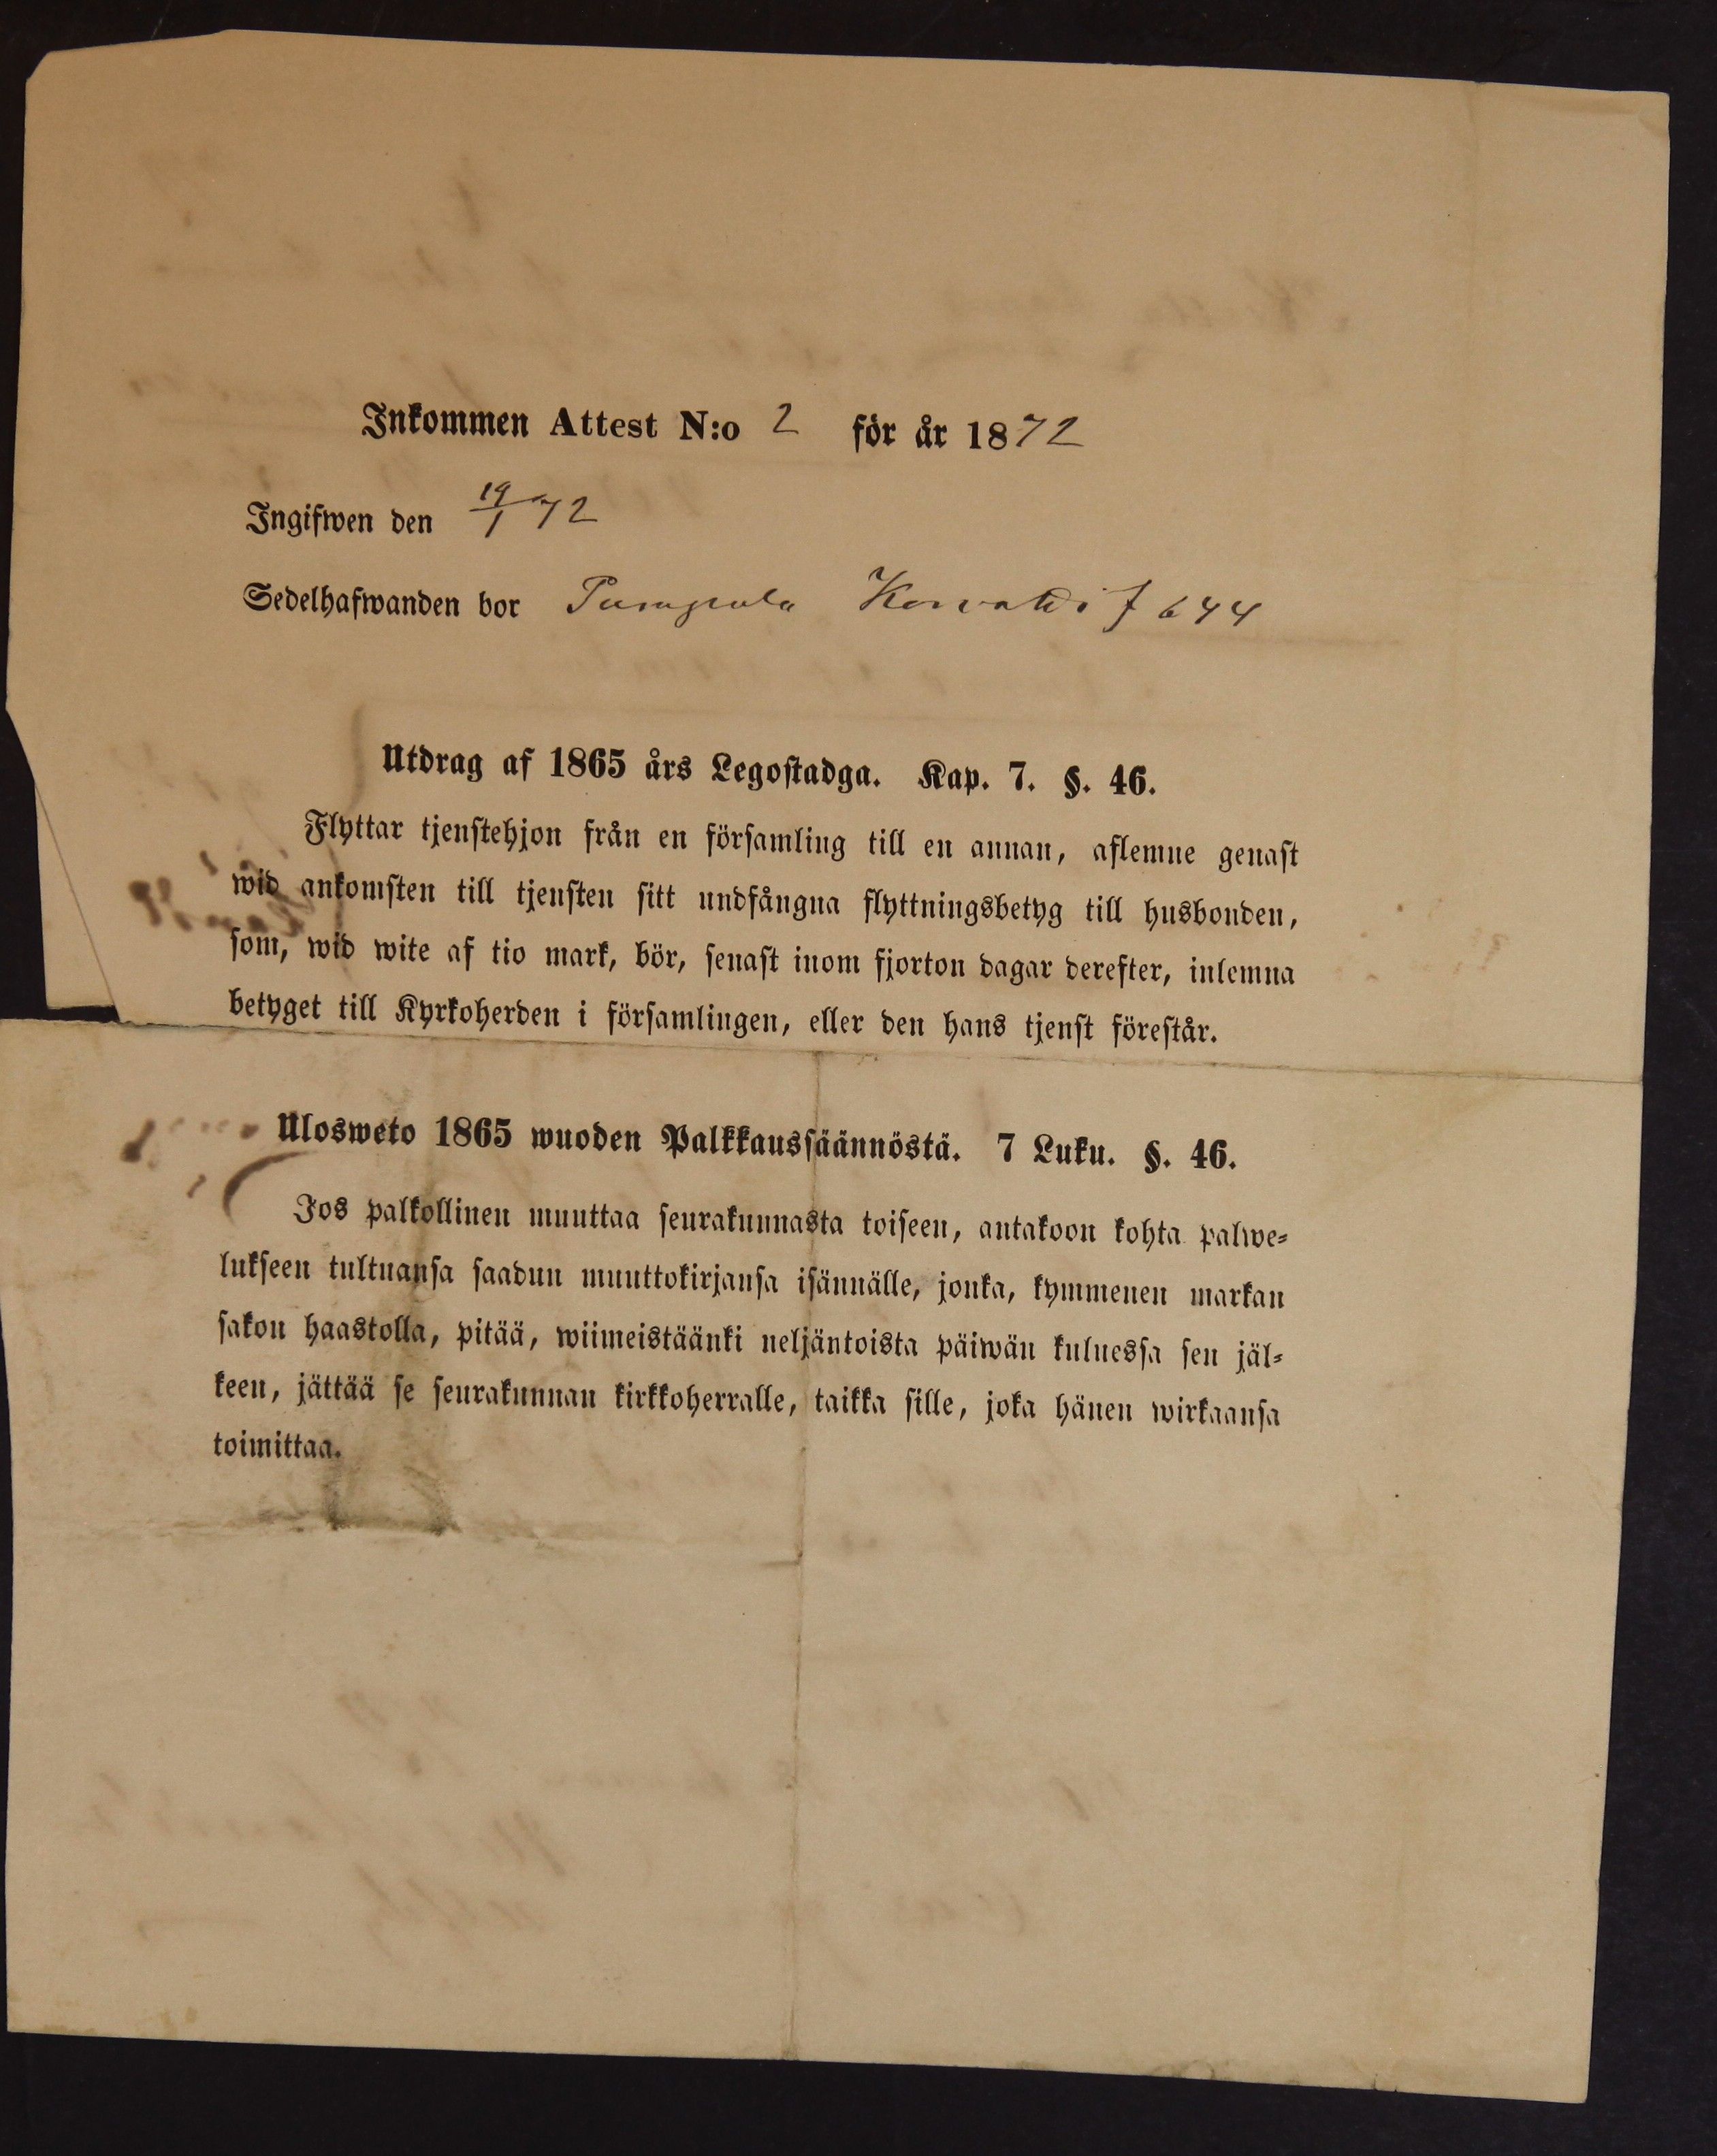 Inkommen Attest N:o 2 för år 1872
Ingifwen den 19/1 72
Sedelhafwanden bor f 644
Utdrag af 1865 års Legostadga. Kap. 7. §. 46.
Flyttar tjenstehjon från en församling till en annan, aflemne genast
wid ankomsten till tjensten sitt undfångna flyttningsbetyg till husbonden,
som, wid wite af tio mark, bör, senast inom fjorton dagar derefter, inlemna
betyget till Kyrkoherden i församlingen, eller den hans tjenst förestår.
Ulosweto 1865 wuoden Palkkaussäännöstä. 7 Luku. §. 46.
Jos palkollinen muuttaa seurakunnasta toiseen, antakoon kohta palwe-
lukseen tultuansa saadun muuttokirjansa isännälle, jonka, kymmenen markan
sakon haastolla, pitää, wiimeistäänki neljäntoista päiwän kuluessa sen jäl-
keen, jättää se seurakunnan kirkkoherralle, taikka sille, joka hänen wirkaansa
toimittaa.